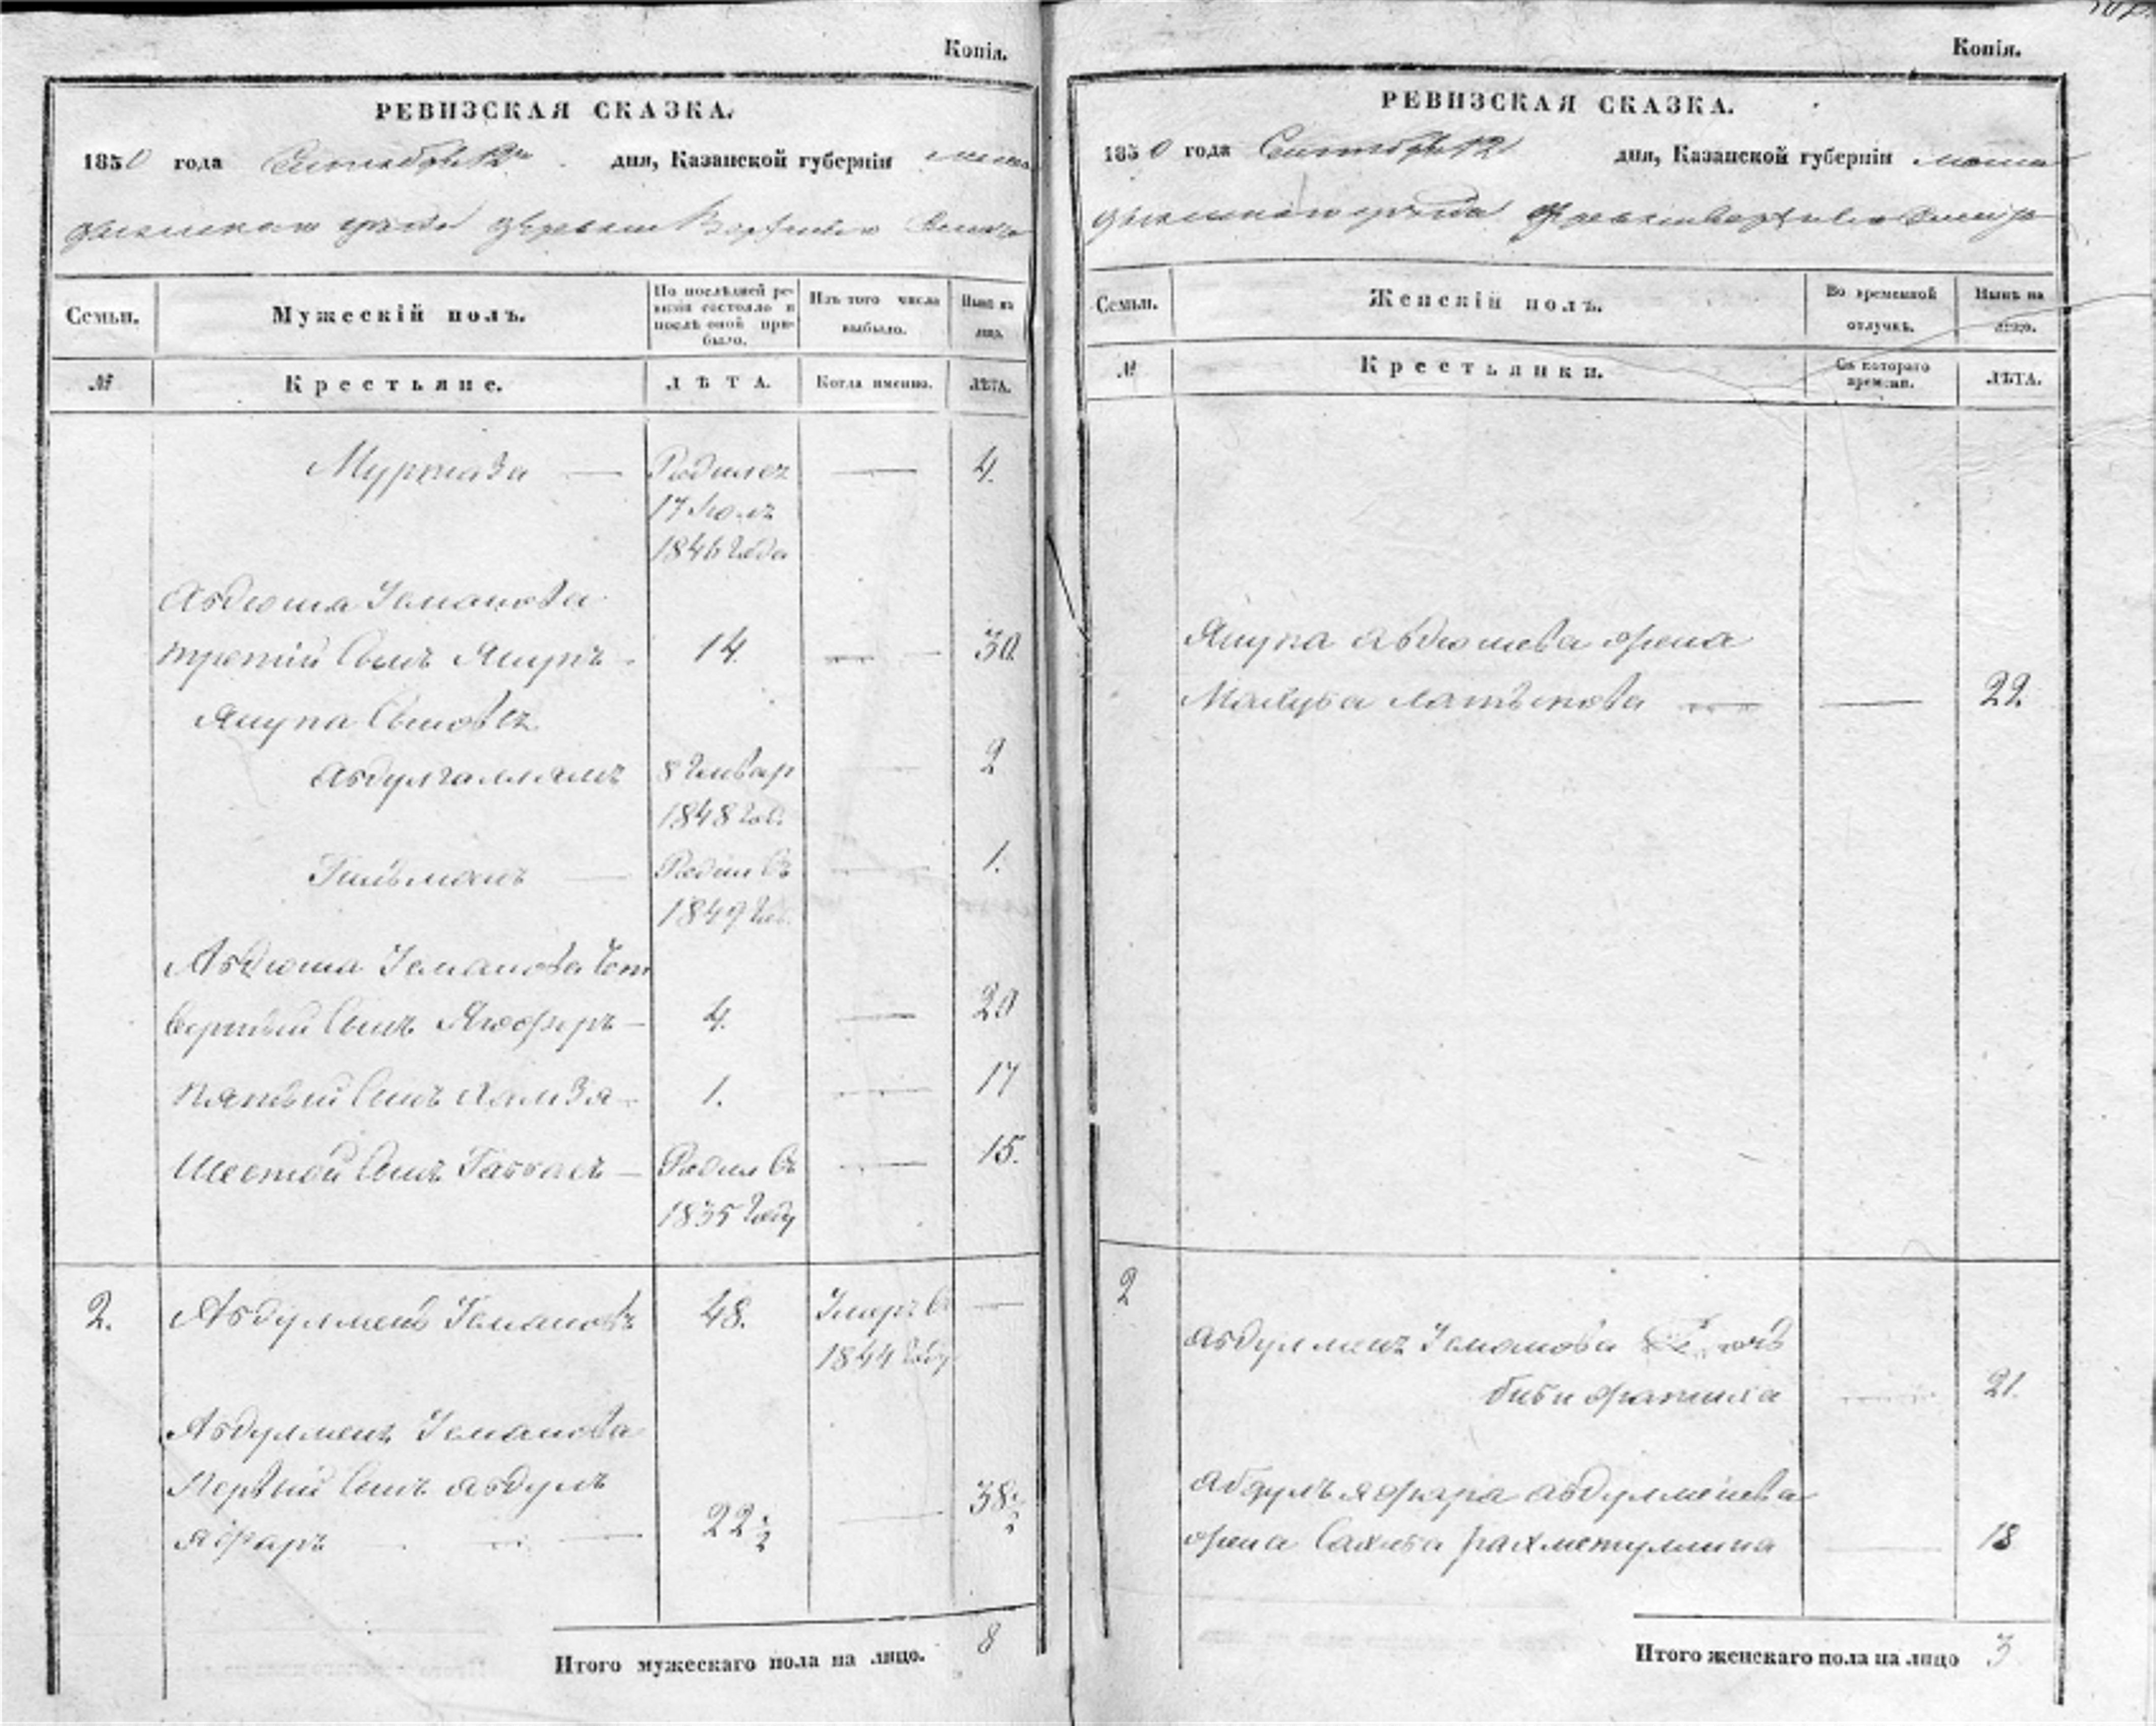 Копія.
РЕВИЗСКАЯ СКАЗКА.
1850 года Сентября 12 дня, Казанской губерніи мама
дышскаго уѣзда деревни
Семьи.
Мужескій полъ.
По послѣдней ре-
визіи состояло и
послѣ оной при-
было.
Изъ того числа
выбыло.
Нынѣ на
лицо.
№
Крестьяне.
ЛѢТА.
Когда именно.
ЛѢТА.
Муртаза — Родился — 4.
17 Іюля
1846 года
Абдюша Усманова
третій сынъ Якупъ 14. — 30
Якупа сыновья
Абдулгаллямъ 8 Генвар — 2
1848 год.
Родил въ — 1.
1849 год.
Абдюша Усманова чет
вертый сынъ Ягоферъ — 4. — 20
Пятый сынъ Хамза 1. — 17
Шестой сынъ Габбасъ — Родил въ — 15.
1835 году
2. Абдулменъ Усмановъ 48. Умеръ въ —
1844 году
Абдулменъ Усманова
Первый сынъ Абдулъ
яфаръ — 22 1/2 — 38 1/2
Итого мужескаго пола на лицо. 8
Копія.
РЕВИЗСКАЯ СКАЗКА.
1850 года Сентября 12 дня, Казанской губерніи мама
дышскаго уѣзда деревни
Семьи.
Женскій полъ.
Во временной
отлучкѣ.
Нынѣ на
лицо.
№
Крестьянки.
Съ котораго
времени.
ЛѢТА.
Якупа Абдюшева жена
Махуба Латыпова — 22.
2
Абдулменъ Усманова дочь
биби фатиха 21.
Абдулъ яфара абдулменева
жена Сахиба рахметуллина — 18
Итого женскаго пола на лицо 3